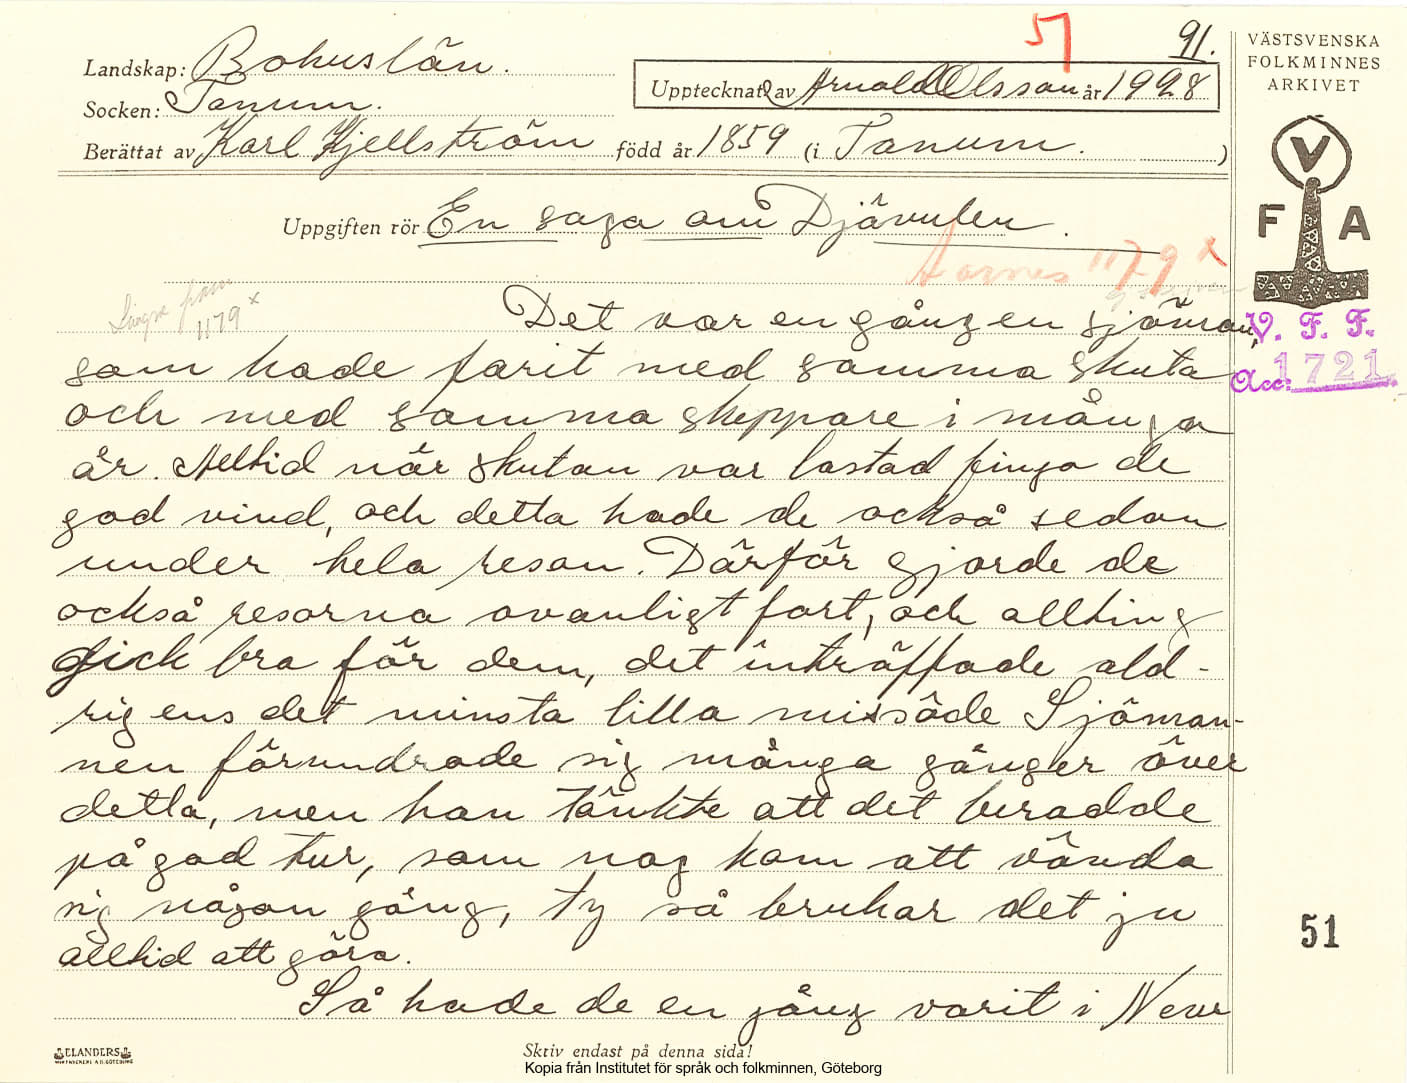 51 91.
Landskap: Bohuslän.
Socken: Tanum.
Upptecknat av Arnold Olsson år 1928
Berättat av Karl Kjellström född år 1859 (i Tanum. )
Uppgiften rör En saga om Djävulen.
Aarnes 1179 x
1179 x
Det var en gång en sjöman,
som hade farit med samma skuta
och med samma skeppare i många
år. Alltid när skutan var lastad fingo de
god vind, och detta hade de också sedan
under hela resan. Därför gjorde de
också resorna ovanligt fort, och allting
gick bra för dem, det inträffade ald-
rig ens det minsta lilla missöde Sjöman-
nen förundrade sig många gånger över
detta, men han tänkte att det berodde
på god tur, som nog kom att vända
sig någon gång, ty så brukar det ju
alltid att göra.
Så hade de en gång varit i New
ELANDERS
Skriv endast på denna sida!
Kopia från Institutet för språk och folkminnen, Göteborg
VÄSTSVENSKA
FOLKMINNES
ARKIVET
V
F A
V. F. F.
Acc: 1721.
51